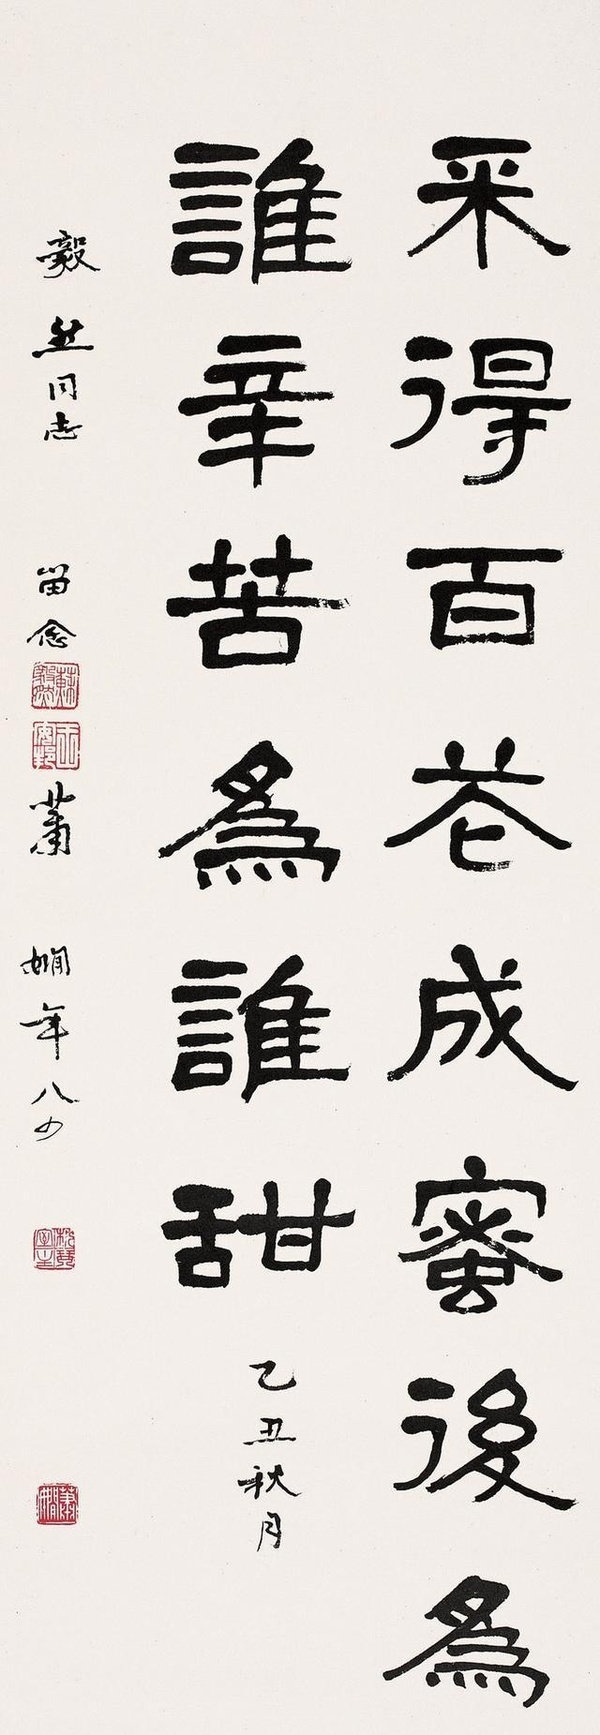 采得百花成蜜後為
誰辛苦為誰甜
乙丑秋月
毅然同志 留念
蕭嫻年八四